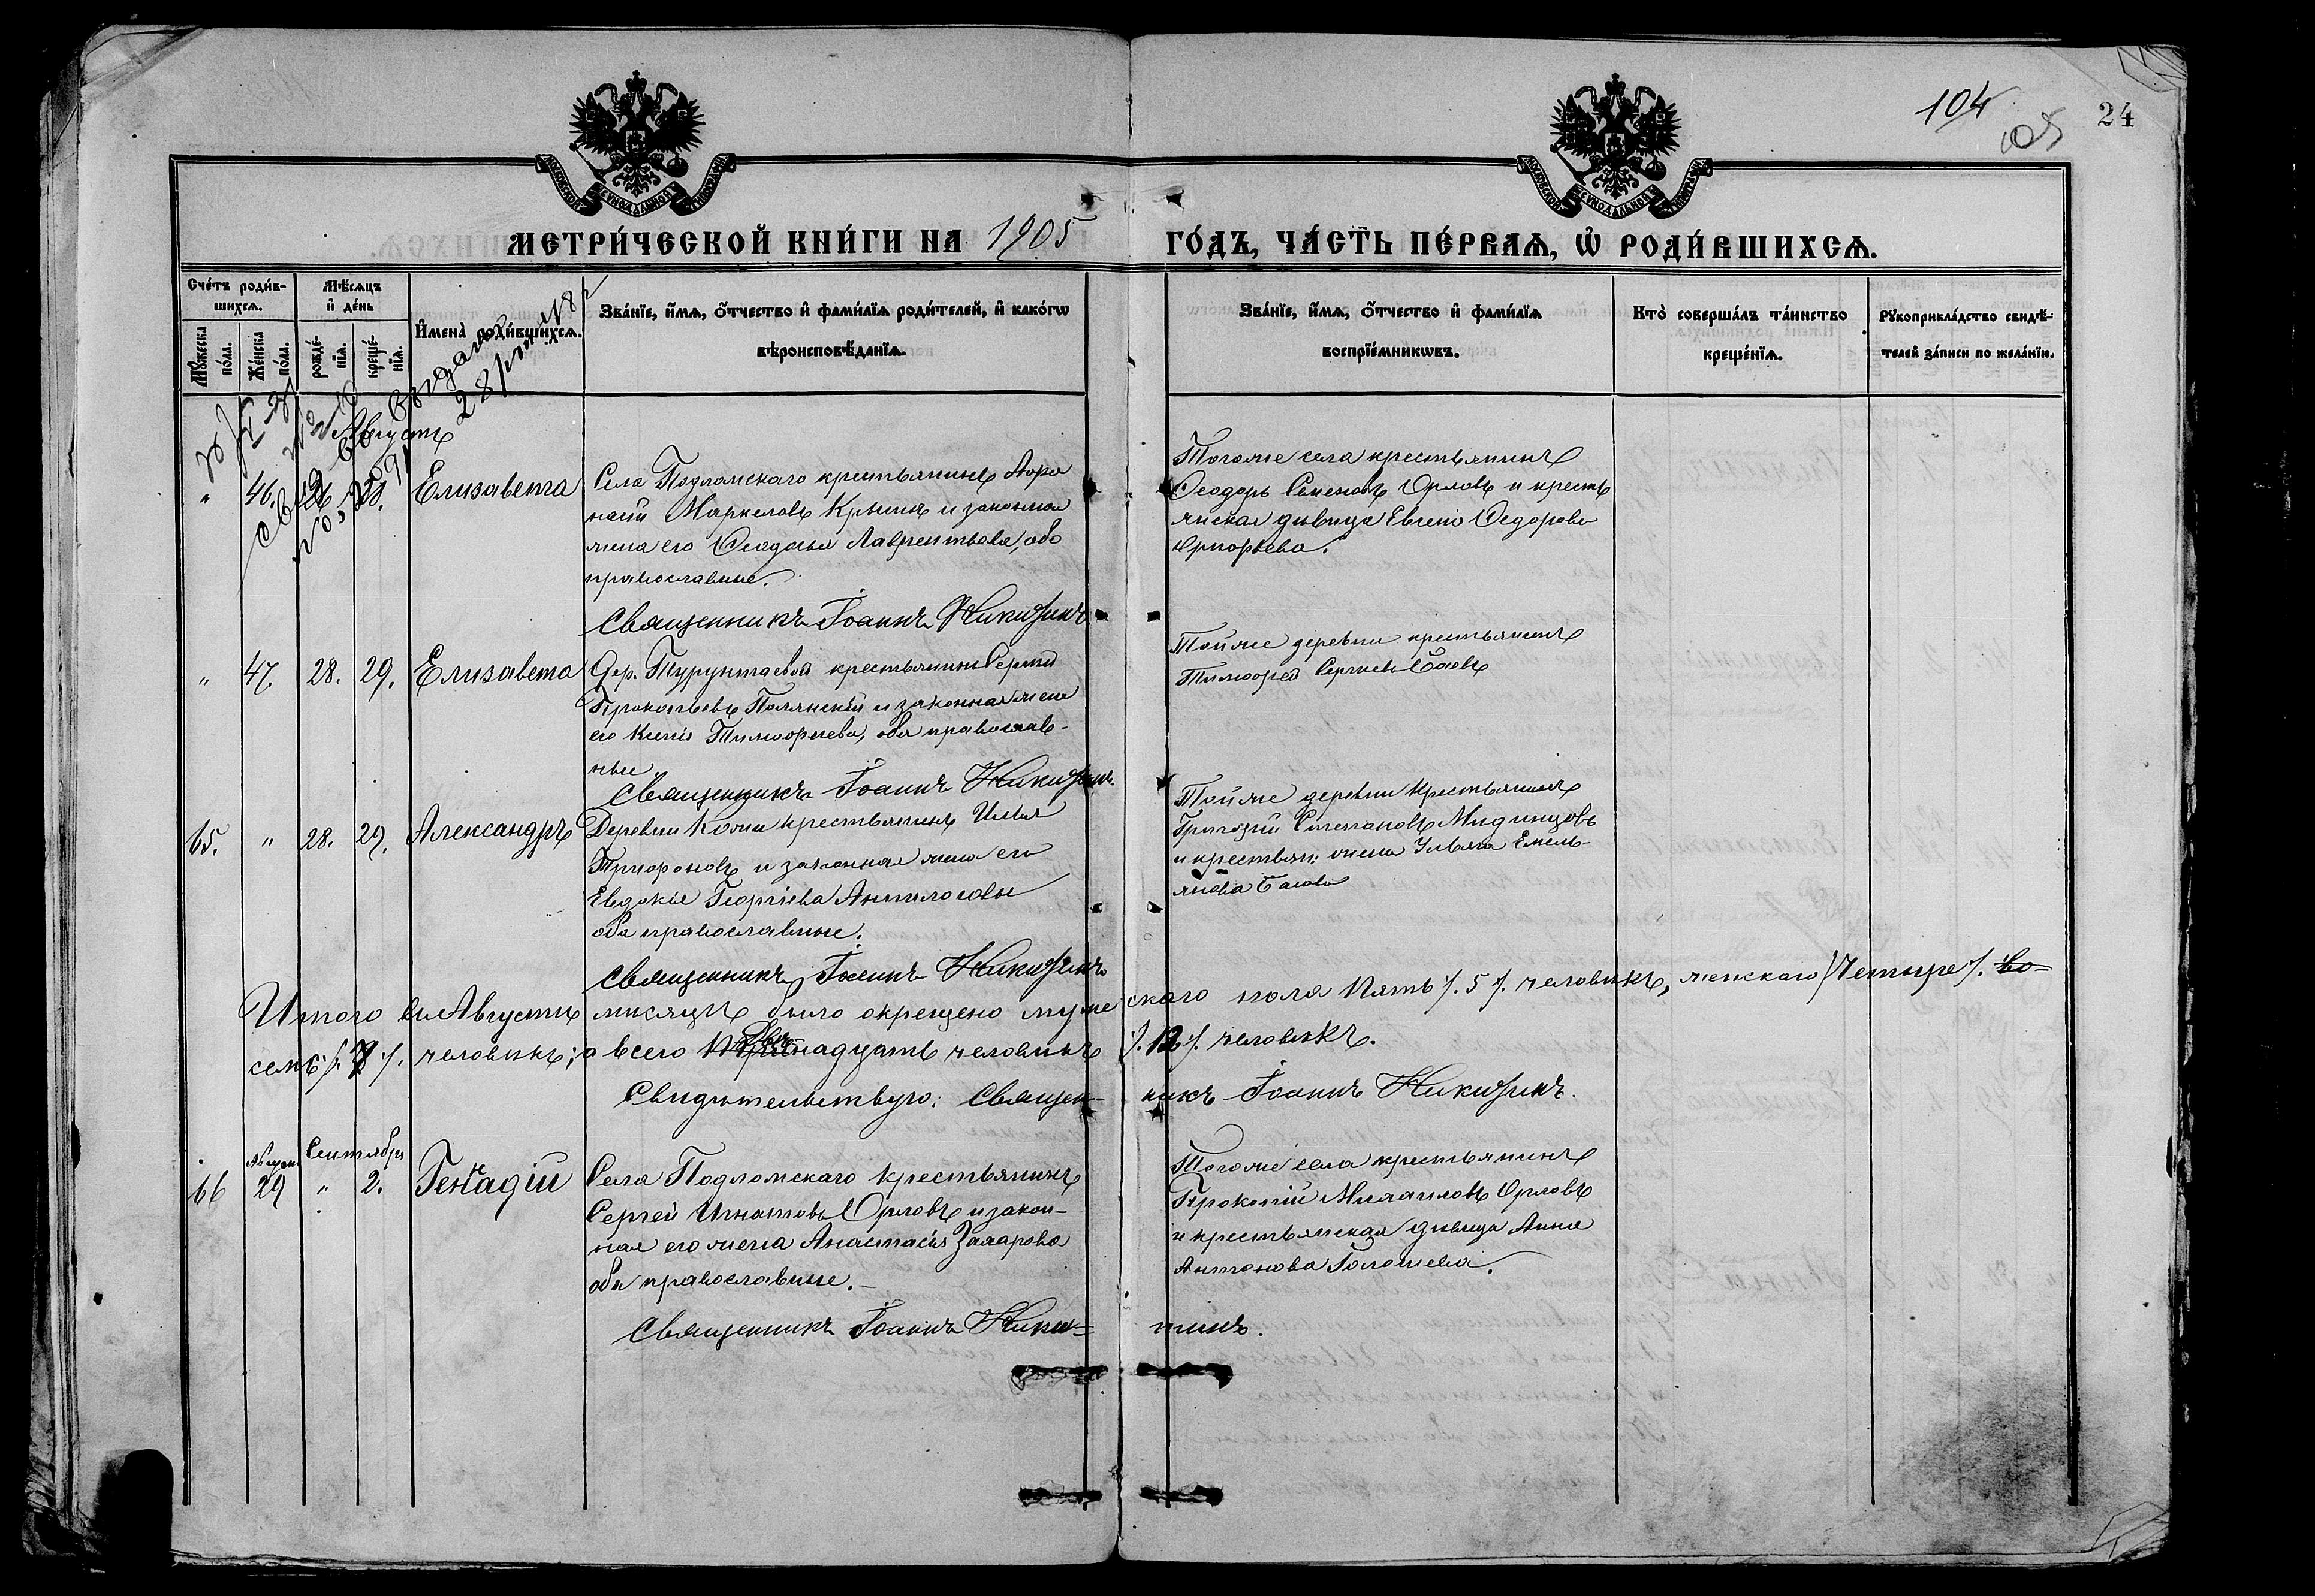 104
105
24
МОСКОВСКОЙ СѴНОДАЛЬНОЙ ТИПОГРАФІИ
МОСКОВСКОЙ СѴНОДАЛЬНОЙ ТИПОГРАФІИ
МЕТРИ́ЧЕСКОЙ КНИ́ГИ НА 1905 ГО́ДЪ, ЧА́СТЬ ПЕ́РВАѦ, Ѡ҆ РОДИ́ВШИХСѦ.
Сче́тъ роди́в-
шихсѧ.
Мꙋ́жеска по́ла.
Же́нска по́ла.
Мѣ́сѧцъ
и҆ де́нь
рожде́-
нїѧ.
креще́-
нїѧ.
И҆мена̀ роди́вшихсѧ.
Зва́нїе, и҆́мѧ, ѻ҆́тчество и҆ фами́лїѧ роди́телей, и҆ како́гѡ
вѣроисповѣ́данїѧ.
Зва́нїе, и҆́мѧ, ѻ҆́тчество и҆ фами́лїѧ
воспрїе́мникѡвъ.
Кто̀ соверша́лъ та́инство
креще́нїѧ.
Рꙋкоприкла́дство свидѣ́-
телей за́писи по жела́нїю.
Августъ
" 46. 26 28. Елизавета
Села Подломскаго крестьянинъ Аѳро
насій Маркеловъ Крынинъ и законная
жена его Ѳеодосья Лаврентьева, оба
православные.
Священникъ Іоаннъ Никитинъ
Тогоже села крестьянинъ
Ѳеодоръ Семеновъ Орловъ и кресть
янская дѣвица Евгенія Ѳедорова
Григорьева.
" 47. 28. 29. Елизавета
Дер. Турунтаевой крестьянинъ Сергѣй
Прокопьевъ Полянскій и законная жена
его Ксенія Тимоѳеева, оба православ-
ные
Священникъ Іоаннъ Никитинъ
Тойже деревни крестьянинъ
Тимоѳей Сергѣевъ Басовъ
65. " 28. 29. Александръ
Деревни крестьянинъ Илья
Трифоновъ и законная жена его
Евдокія Георгіева Анпилоговы
оба православные.
Священникъ Іоаннъ Никитинъ
Тойже деревни крестьянинъ
Григорій Степановъ Мидинцовъ
и крестьян. жена Ульяна Емель-
янова Басова
Итого въ Августѣ мѣсяцѣ было окрещено мужескаго пола Пять /. 5 /. человѣкъ, женскаго /Четыре/. во-
семь /. 7 /. человѣкъ; а всего Двѣнадцать человѣкъ /. 12 /. человѣкъ.
Свидѣтельствую: Священникъ Іоаннъ Никитинъ.
Август. Сентябрь
66 29 " 2. Генадій
Села Подломскаго крестьянинъ
Сергѣй Игнатовъ Орловъ и закон-
ная его жена Анастасія Захарова
оба православные. -
Священникъ Іоаннъ Ники=тинъ.
Тогоже села крестьянинъ
Прокопій Михаиловъ Орловъ
и крестьянская дѣвица Анна
Антонова Голошева.